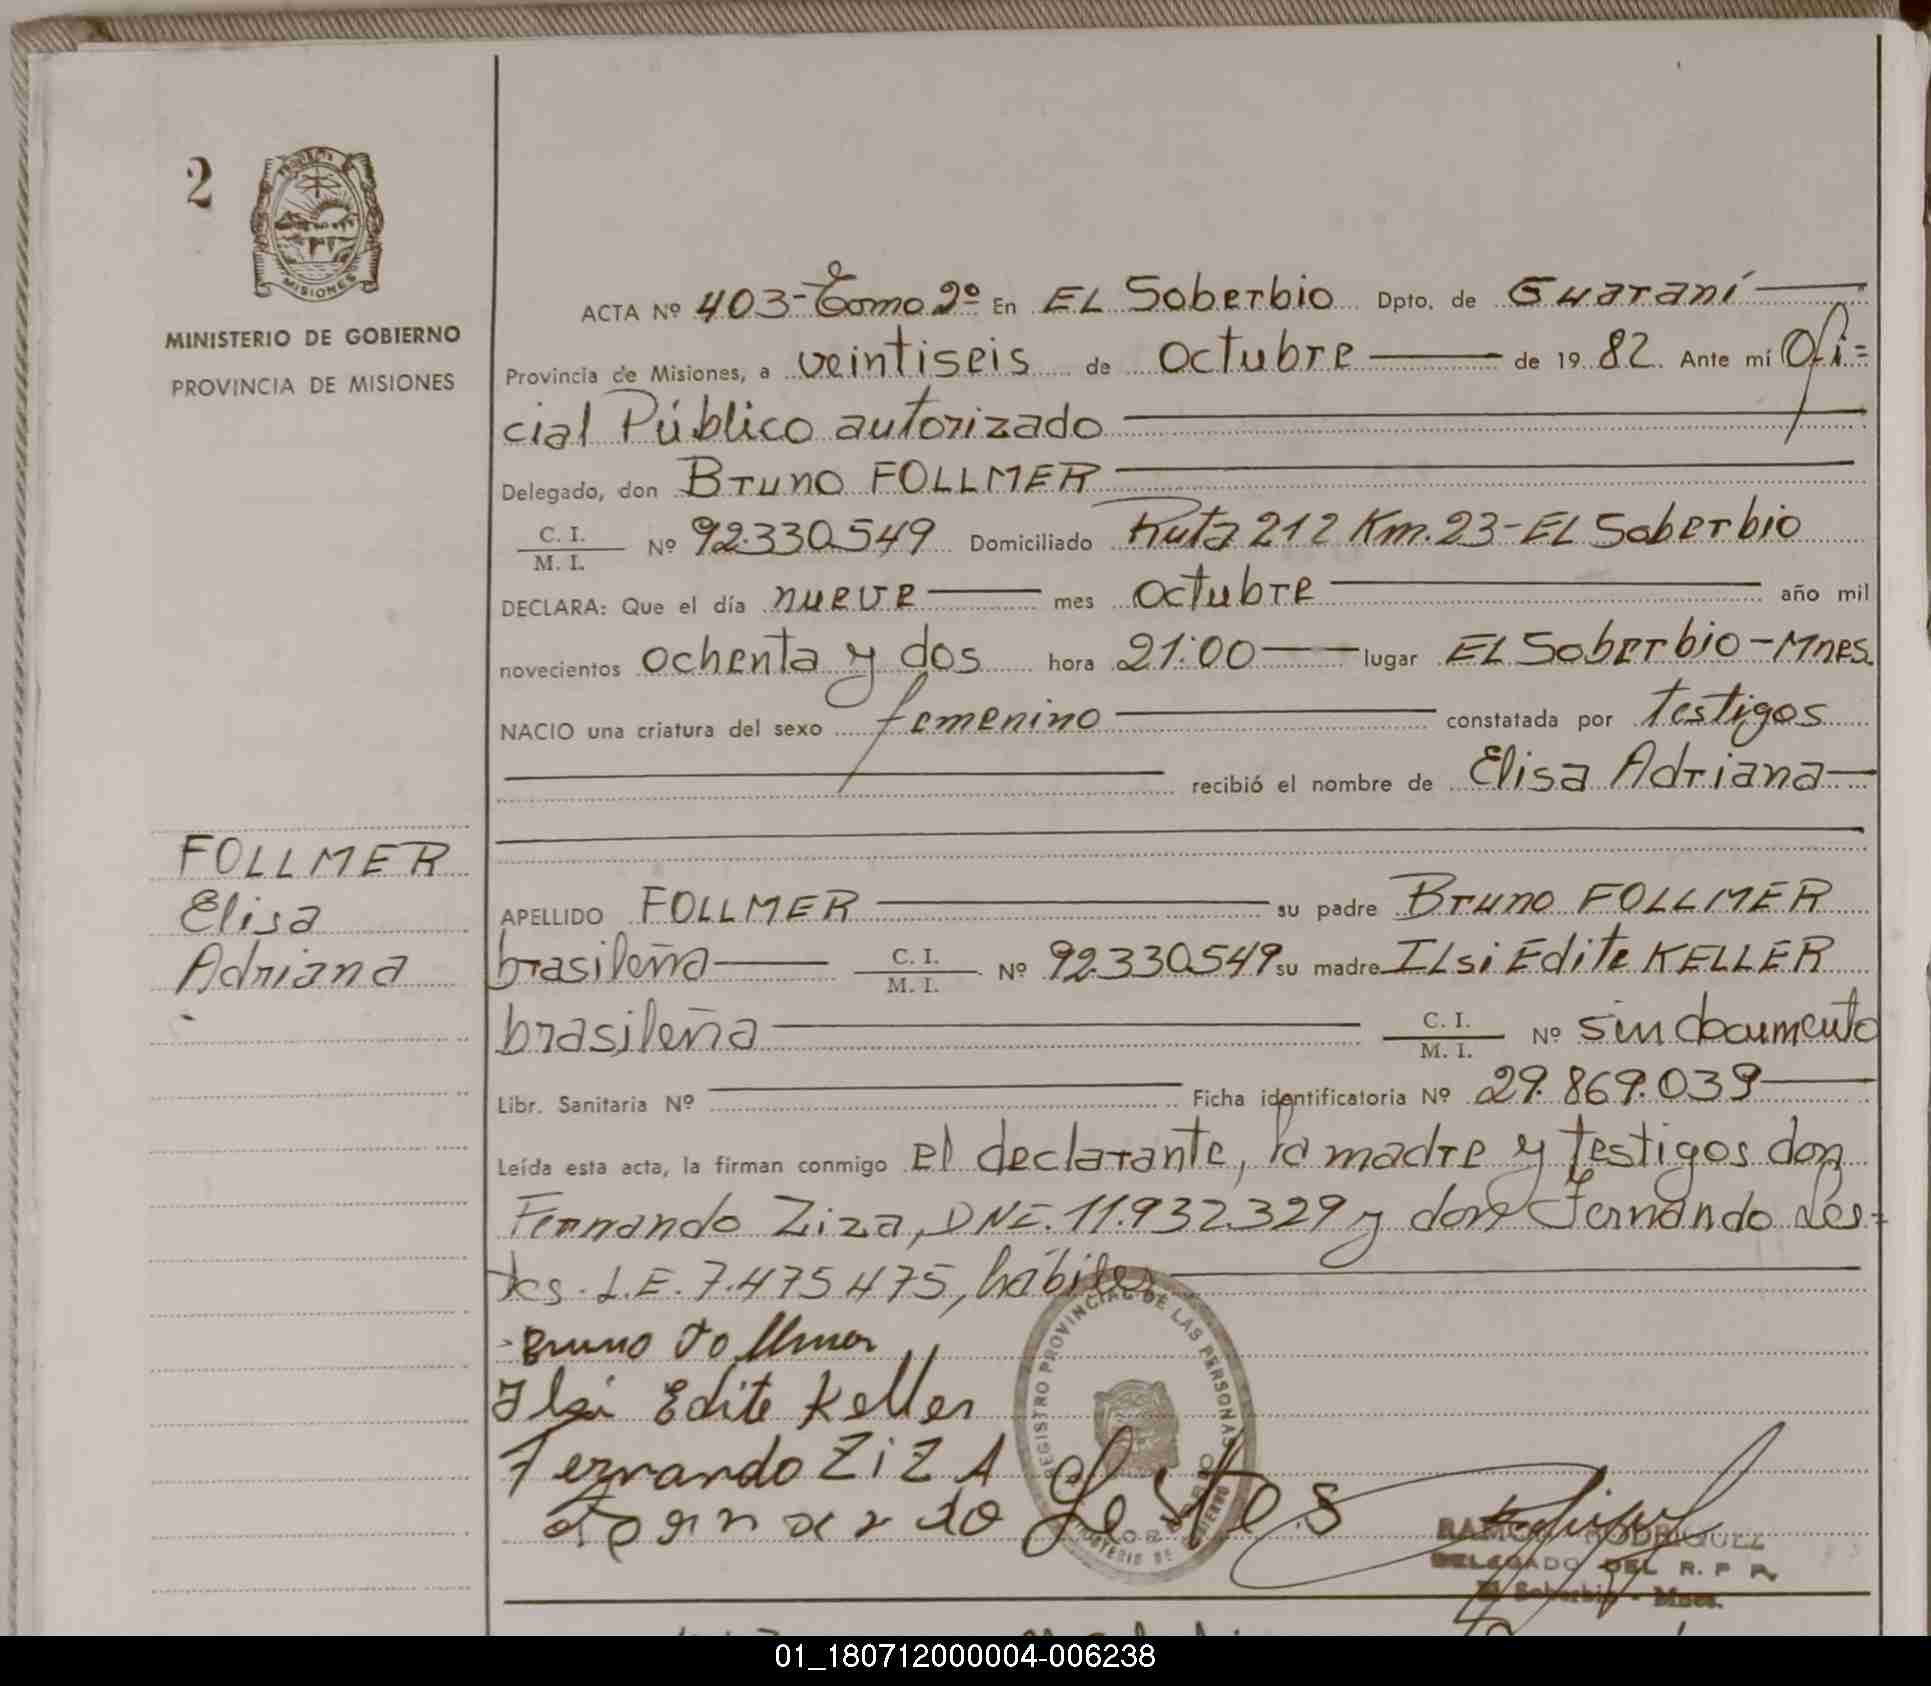 2
MISIONES
MINISTERIO DE GOBIERNO
PROVINCIA DE MISIONES
ACTA Nº 403-Tomo 2º En EL Soberbio Dpto. de Guaraní
Provincia de Misiones, a veintiseis de octubre de 19 82. Ante mí Ofi=
cial Público autorizado
Delegado, don Bruno FOLLMER
C. I.
M. I. Nº 92.330.549 Domiciliado Ruta 212 Km. 23-EL Soberbio
DECLARA: Que el día nueve mes octubre año mil
novecientos ochenta y dos hora 21:00 lugar EL Soberbio-Mnes.
NACIO una criatura del sexo femenino constatada por testigos
recibió el nombre de Elisa Adriana
FOLLMER
Elisa
Adriana
APELLIDO FOLLMER su padre Bruno FOLLMER
brasileña C. I.
M. I. Nº 92.330.549 su madre ILsi Edite KELLER
brasileña C. I.
M. I. Nº sin documento
Libr. Sanitaria Nº Ficha identificatoria Nº 29.869.039
Leída esta acta, la firman conmigo el declarante, la madre y testigos don
Fernando Ziza, DNI. 11.932.329 y don Fernando Les=
tes. L.E. 7.475.475, hábiles
Bruno Follmer
Ilsi Edite Keller
Fernando ZiZA
Fernando Lestes
REGISTRO PROVINCIAL DE LAS PERSONAS
MINISTERIO DE GOBIERNO
RAMON RODRIGUEZ
DELEGADO DEL R. P. P.
El Soberbio - Mnes.
01_180712000004-006238